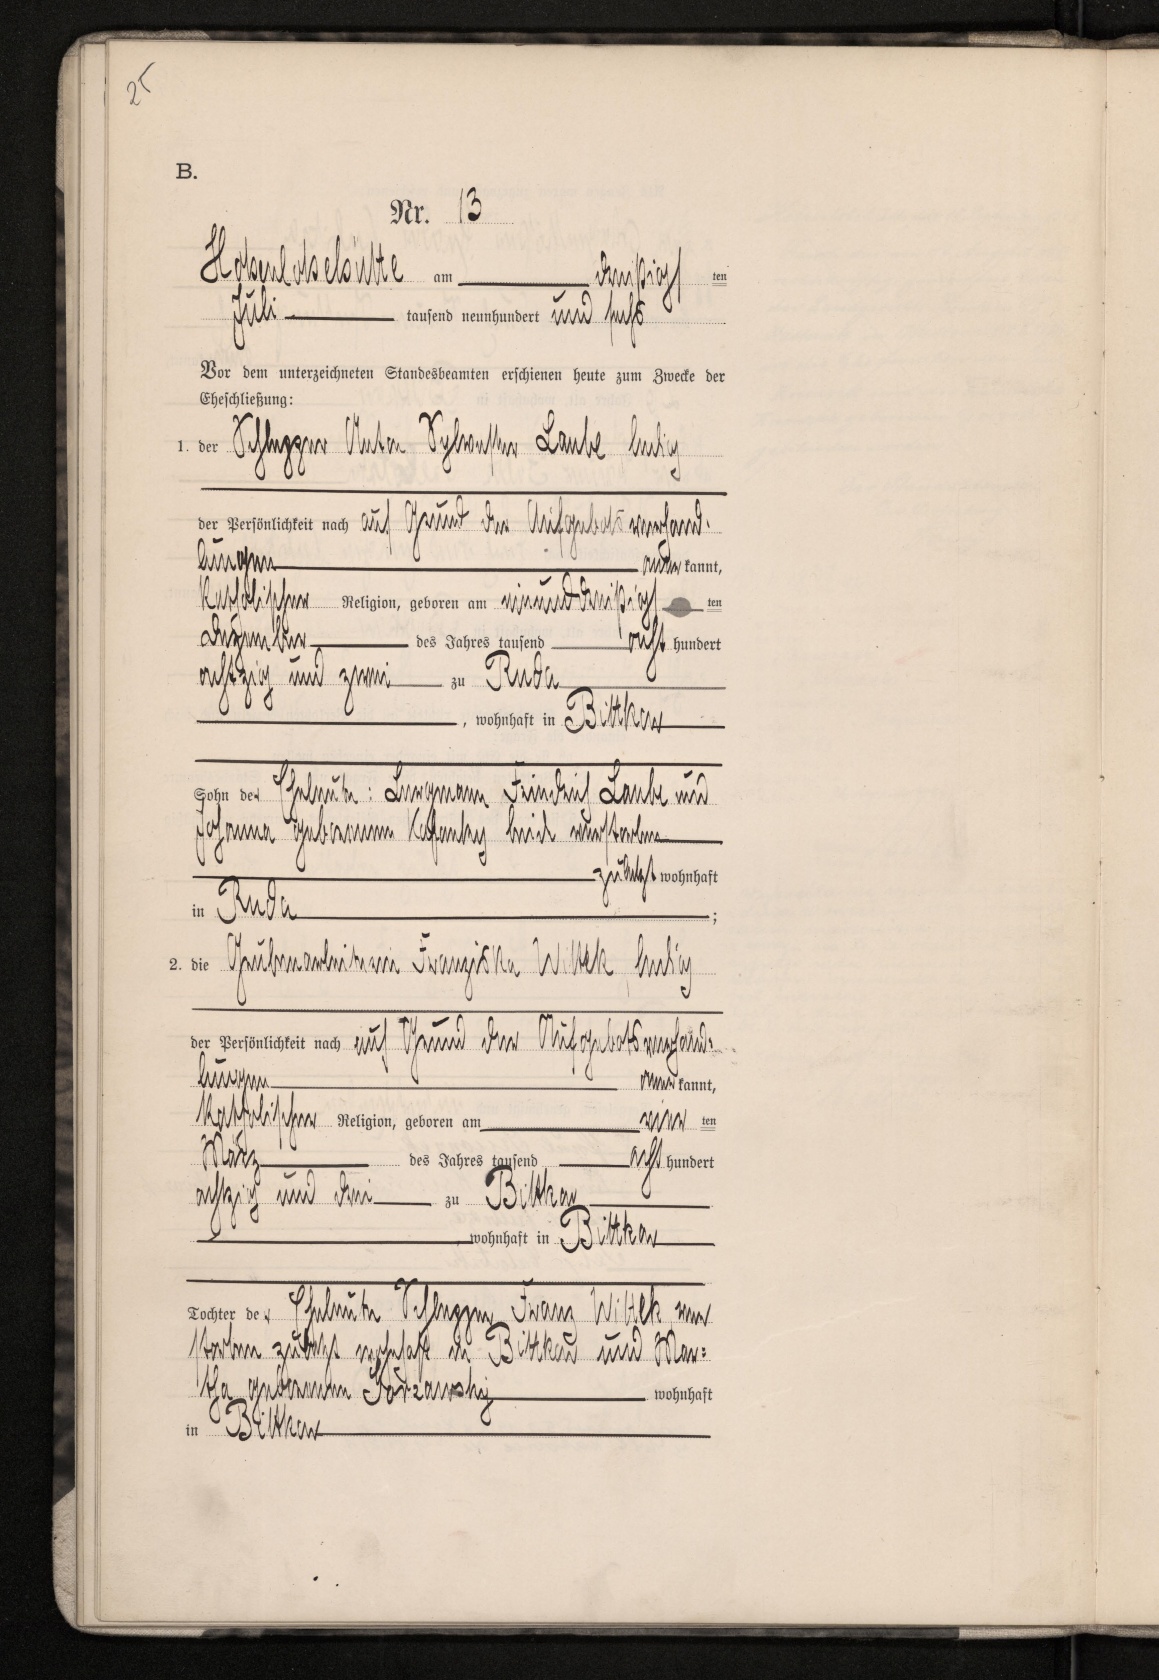 25
B.
Nr. 13
Hohenlohehütte am dreißigs ten
Juli tausend neunhundert und sechs
Vor dem unterzeichneten Standesbeamten erschienen heute zum Zwecke der
Eheschließung:
1. der Schlepper Anton Sylvester Laube ledig
der Persönlichkeit nach auf Grund der Aufgebotsverhand-
lungen aner kannt,
katholischer Religion, geboren am einunddreißigs ten
Dezember des Jahres tausend acht hundert
achtzig und zwei zu Ruda
, wohnhaft in Bittkow
Sohn der Eheleute: Bergmann Friedrich Laube und
Johanna geborenen beide verstorben
zuletzt wohnhaft
in Ruda ;
2. die Grubenarbeiterin Franziska Wittek ledig
der Persönlichkeit nach auf Grund der Aufgebotsverhand-
lungen aner kannt,
katholischer Religion, geboren am vier ten
März des Jahres tausend acht hundert
achtzig und drei zu Bittkow
wohnhaft in Bittkow
Tochter der Eheleute Schlepper Franz Wittek ver
storben zuletzt wohnhaft in Bittkow und Mar=
tha geborenen wohnhaft
in Bittkow